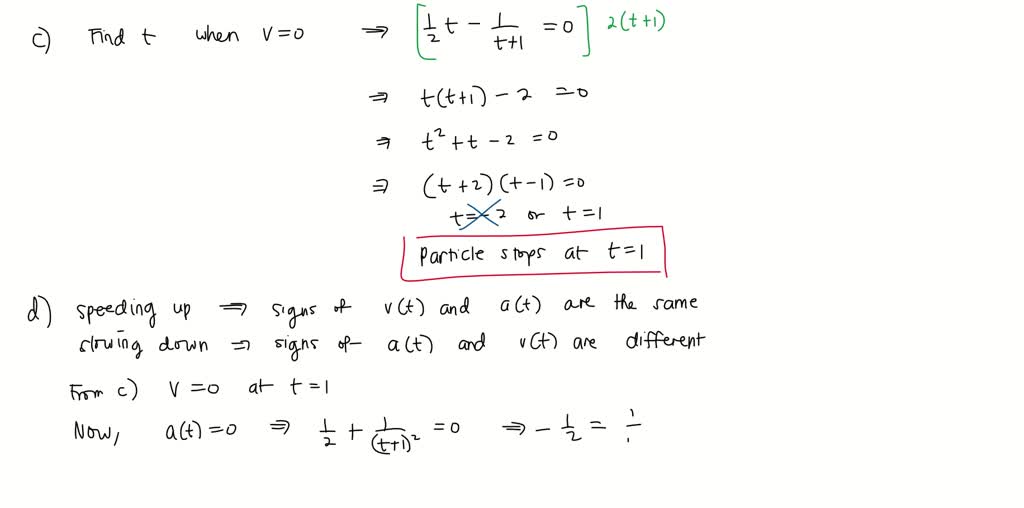 c) Find t when v=0 ⇒ [1/2 t − 1/(t+1) = 0] 2(t+1)
⇒ t(t+1) − 2 = 0
⇒ t² + t − 2 = 0
⇒ (t+2)(t−1) = 0
t=−2 or t=1
Particle stops at t=1
d) speeding up ⇒ signs of v(t) and a(t) are the same
slowing down ⇒ signs of a(t) and v(t) are different
From c) v=0 at t=1
Now, a(t)=0 ⇒ 1/2 + 1/(t+1)² = 0 ⇒ − 1/2 =